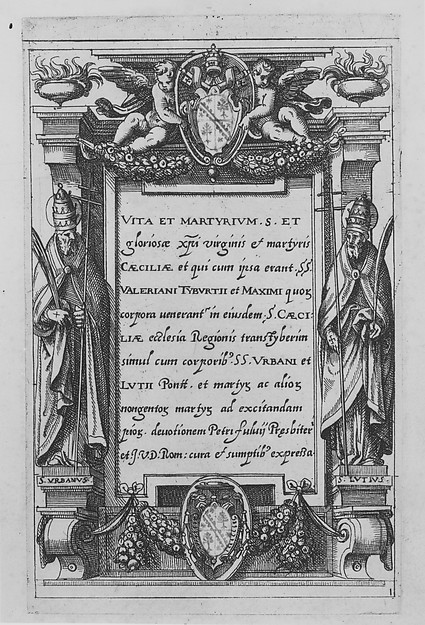 VITA ET MARTYRIVM . S . ET
gloriosæ xp̃i virginis & martyris
CÆCILIÆ et qui cum ipsa erant . SS.
VALERIANI TYBVRTII et MAXIMI quoꝝ
corpora venerantᵘʳ in eiusdem . S . CÆCI:
LIÆ ecclesia Regionis transtyberim
simul cum corporibꝰ . SS . VRBANI et
LVTII Pontt . et martyꝝ ac alioꝝ
nongentoꝝ martyꝝ ad excitandam
pioꝝ . devotionem Petri fulvij Præsbiterⁱ
et J.V.D. Rom: cura & sumptibꝰ expressa.
S. VRBANVS
S. LVTIVS .
1